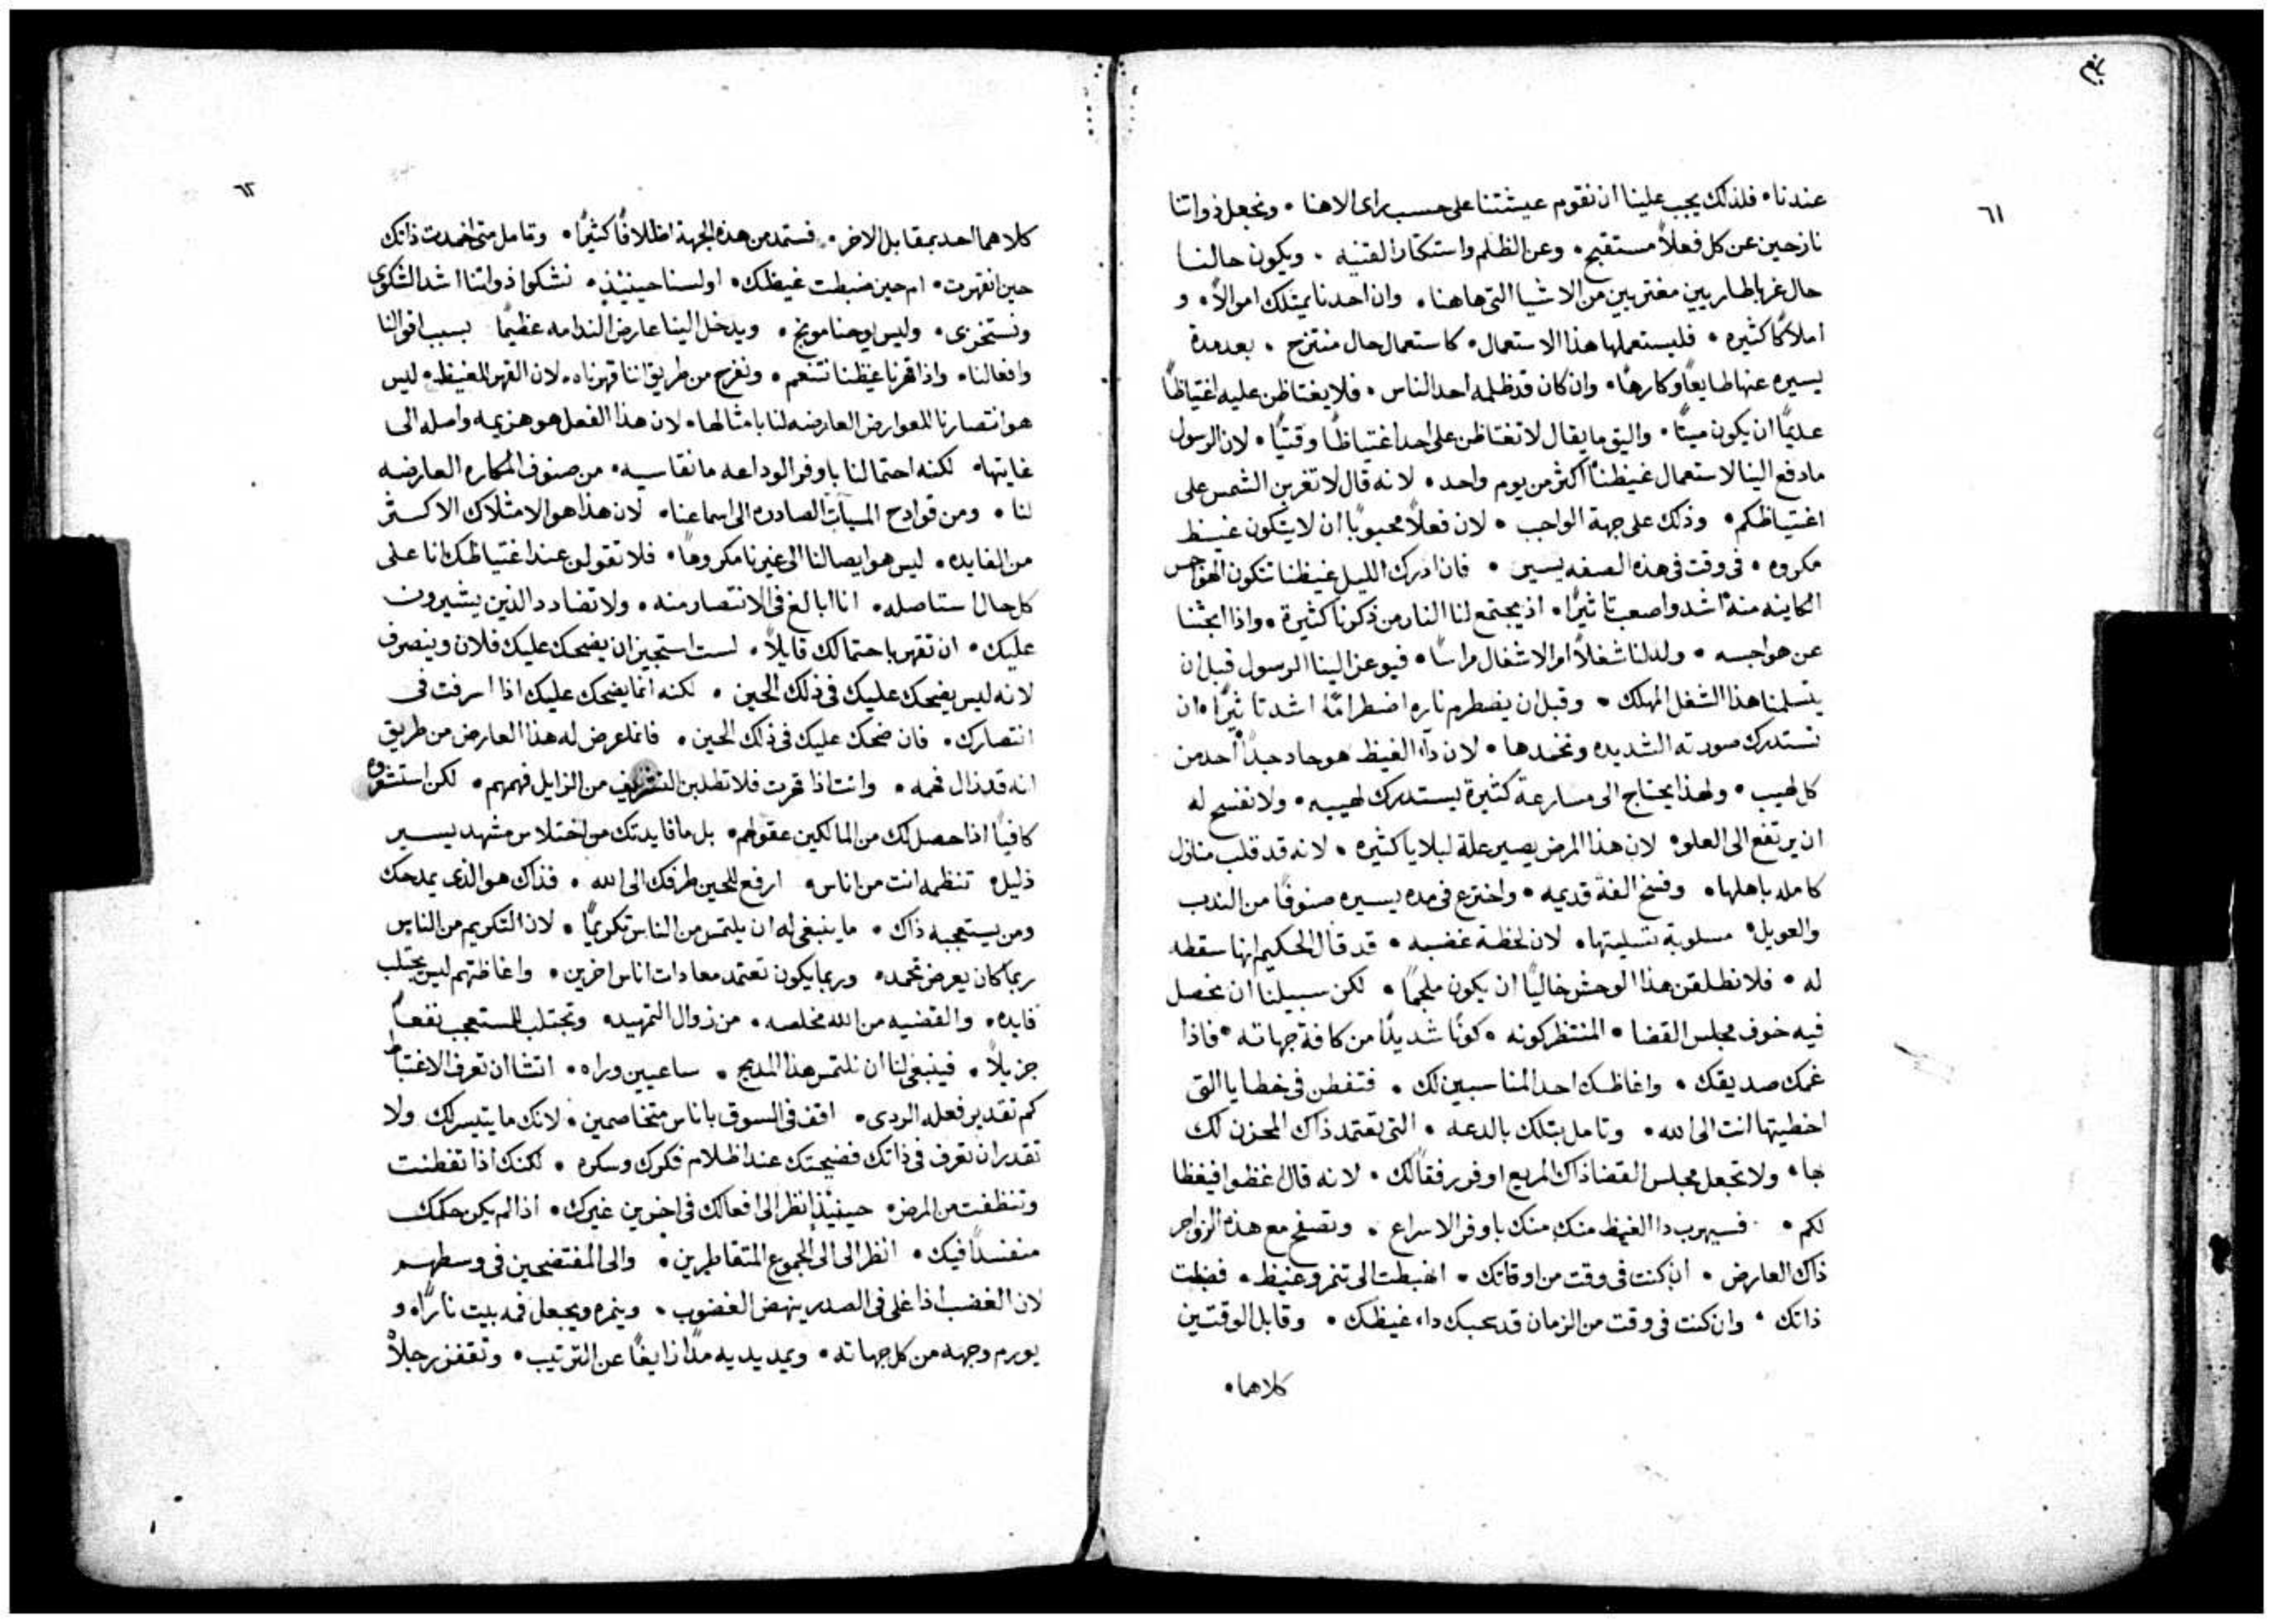 ٦١
عندنا • فلذلك يجب علينا ان نقوم عيشتنا على حسب راى الاهنا • ونجعل ذواتنا
نازحين عن كل فعلاً مستقبح • وعن الظلم واستكثار القنيه • ويكون حالنا
حال غربا طاريين مغتربين من الاشيا التى هاهنا • وان احدنا يمتلك اموالاً • و
املاكاً كثيره • فليستعملها هذا الاستعمال • كاستعمال حال منتزح • بعد مدة
يسيره عنها طايعاً وكارهاً • وان كان قد ظلمه احد الناس • فلا يغتاظن عليه اغتياظاً
عديماً ان يكون ميتاً • واليق ما يقال لا تغتاظن على احد اغتياظاً وقتياً • لان الرسول
ما دفع الينا لاستعمال غيظنا اكثر من يوم واحد • لانه قال لا تغربن الشمس على
اغتياظكم • وذلك على جهة الواجب • لان فعلاً محبوباً ان لا يتكون غيظ
مكروه • فى وقت فى هذه الصفه يسير • فان ادرك الليل غيظنا تتكون الهواجس
الكاينه منه اشد واصعب تاثيراً • اذ يجتمع لنا النار من ذكرنا كثيرة • واذا ابحثنا
عن هواجسه • ولد لنا شغلاً امر الاشغال مراسا • فيوعز الينا الرسول قبل ان
يتسلمنا هذا الشغل المهلك • وقبل ان يضطرم ناره اضطراماً اشد تاثيراً • ان
نستدرك صورته الشديده ونخمدها • لان داء الغيظ هو حاد جداً احد من
كل لهيب • ولهذا يحتاج الى مسارعة كثيرة يستدرك لهيبه • ولا نفسح له
ان يرتفع الى العلو • لان هذا المرض يصير علة لبلايا كثيره • لانه قد قلب منازل
كامله باهلها • وفسخ الفة قديمه • واخترع فى مده يسيره صنوفاً من الندب
والعويل • مسلوبة تسليتها • لان لحظة غضبه • قد قال الحكيم انها سقطه
له • فلا نطلقن هذا الوحش خالياً ان يكون ملجماً • لكن سبيلنا ان نحصل
فيه خوف مجلس القضا • المنتظر كونه • كوناً شديداً من كافة جهاته • فاذا
غمك صديقك • واغاظك احد المناسبين لك • فتفطن فى خطايا التى
اخطيتها انت الى الله • وتامل بتلك بالدعه • التى تعتمد ذاك المحزن لك
بها • ولا تجعل مجلس القضا ذاك المريع اوفر رفقاً لك • لانه قال غظوا فيغظا
لكم • فسيهرب دا الغيظ منك منك باوفر الاسراع • وتصفح مع هذه الزواجر
ذاك العارض • ان كنت فى وقت من اوقاتك • انهبطت الى تنمر وغيظ • فضبطت
ذاتك • وان كنت فى وقت من الزمان قد سحبك داء غيظك • وقابل الوقتين
كلاهما •
٦٢
كلاهما احد بمقابل الاخر • فستمد من هذه الجهة اطلافاً كثيراً • وتامل متى اخمدت ذاتك
حين انقهرت • ام حين ضبطت غيظك • اولسنا حينيذٍ • نشكوا ذواتنا اشد الشكوى
ونستخزى • وليس يوجنا موبخ • ويدخل الينا عارض الندامه عظيماً بسبب اقوالنا
وافعالنا • واذا قهرنا غيظنا نتنعم • ونفرح من طريق اننا قهرناه • لان القهر للغيظ • ليس
هو انتصارنا للعوارض العارضه لنا بامثالها • لان هذا الفعل هو هزيمه واصله الى
غايتها • لكنه احتمالنا باوفر الوداعه ما نقاسيه • من صنوف المكاره العارضه
لنا • ومن قوادح المسبات الصادره الى اسماعنا • لان هذا هو الامتلاك الاكثر
من الفايده • ليس هو ايصالنا الى غيرنا مكروهاً • فلا تقولن عند اغتياظك انا على
كل حال استاصله • انا ابالغ فى الانتصار منه • ولا تضادد الذين يشيرون
عليك • ان تقهر باحتمالك قايلاً • لست استجيز ان يضحك عليك فلان وينصرف
لانه ليس يضحك عليك فى ذلك الحين • لكنه انما يضحك عليك اذا اسرفت فى
انتصارك • فان ضحك عليك فى ذلك الحين • فانما عرض له هذا العارض من طريق
انه قد زال فهمه • وانت اذا قهرت فلا تطلبن التشريف من الزايل فهمهم • لكن استشعره
كافياً اذا حصل لك من المالكين عقولهم • بل ما فايدتك من اختلاس مشهد يسير
ذليل تنظمه انت من اناس • ارفع للحين طرفك الى الله • فذاك هو الذى يمدحك
ومن يستعجبه ذاك • ما ينبغى له ان يلتمس من الناس تكريماً • لان التكريم من الناس
ربما كان يعرض تحمده • وربما يكون تعتمد معادات اناس اخرين • واغاظتهم ليس يجتلب
فايده • والقضيه من الله مخلصه • من زوال التمهيد • وتجتلب للمستعجب نفعاً
جزيلاً • فينبغى لنا ان نلتمس هذا المديح • ساعيين وراه • اتشا ان تعرف الاغتباط
كم تقدير فعله الردى • اقف فى السوق باناس متخاصمين • لانك ما يتيسر لك ولا
تقدر ان تعرف فى ذاتك فضيحتك عند اظلام فكرك وسكره • لكنك اذا تفطنت
وتنظفت من المرض • حينيذ انظر الى افعالك فى اخرين غيرك • اذا لم يكن حكمك
منفسداً فيك • انظر الى الى الجموع المتقاطرين • والى المفتضحين فى وسطهم
لان الغضب اذا غلى فى الصدر ينهض الغضوب • وينمره ويجعل فمه بيت ناراً • و
يورم وجهه من كل جهاته • ويمد يديه مداً زايغاً عن الترتيب • وتقفز رجلاه